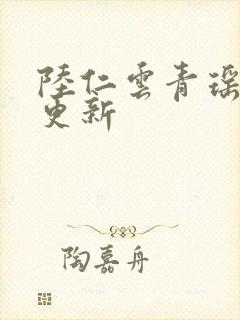 陸仁雲青瑶
更新
陶嘉舟